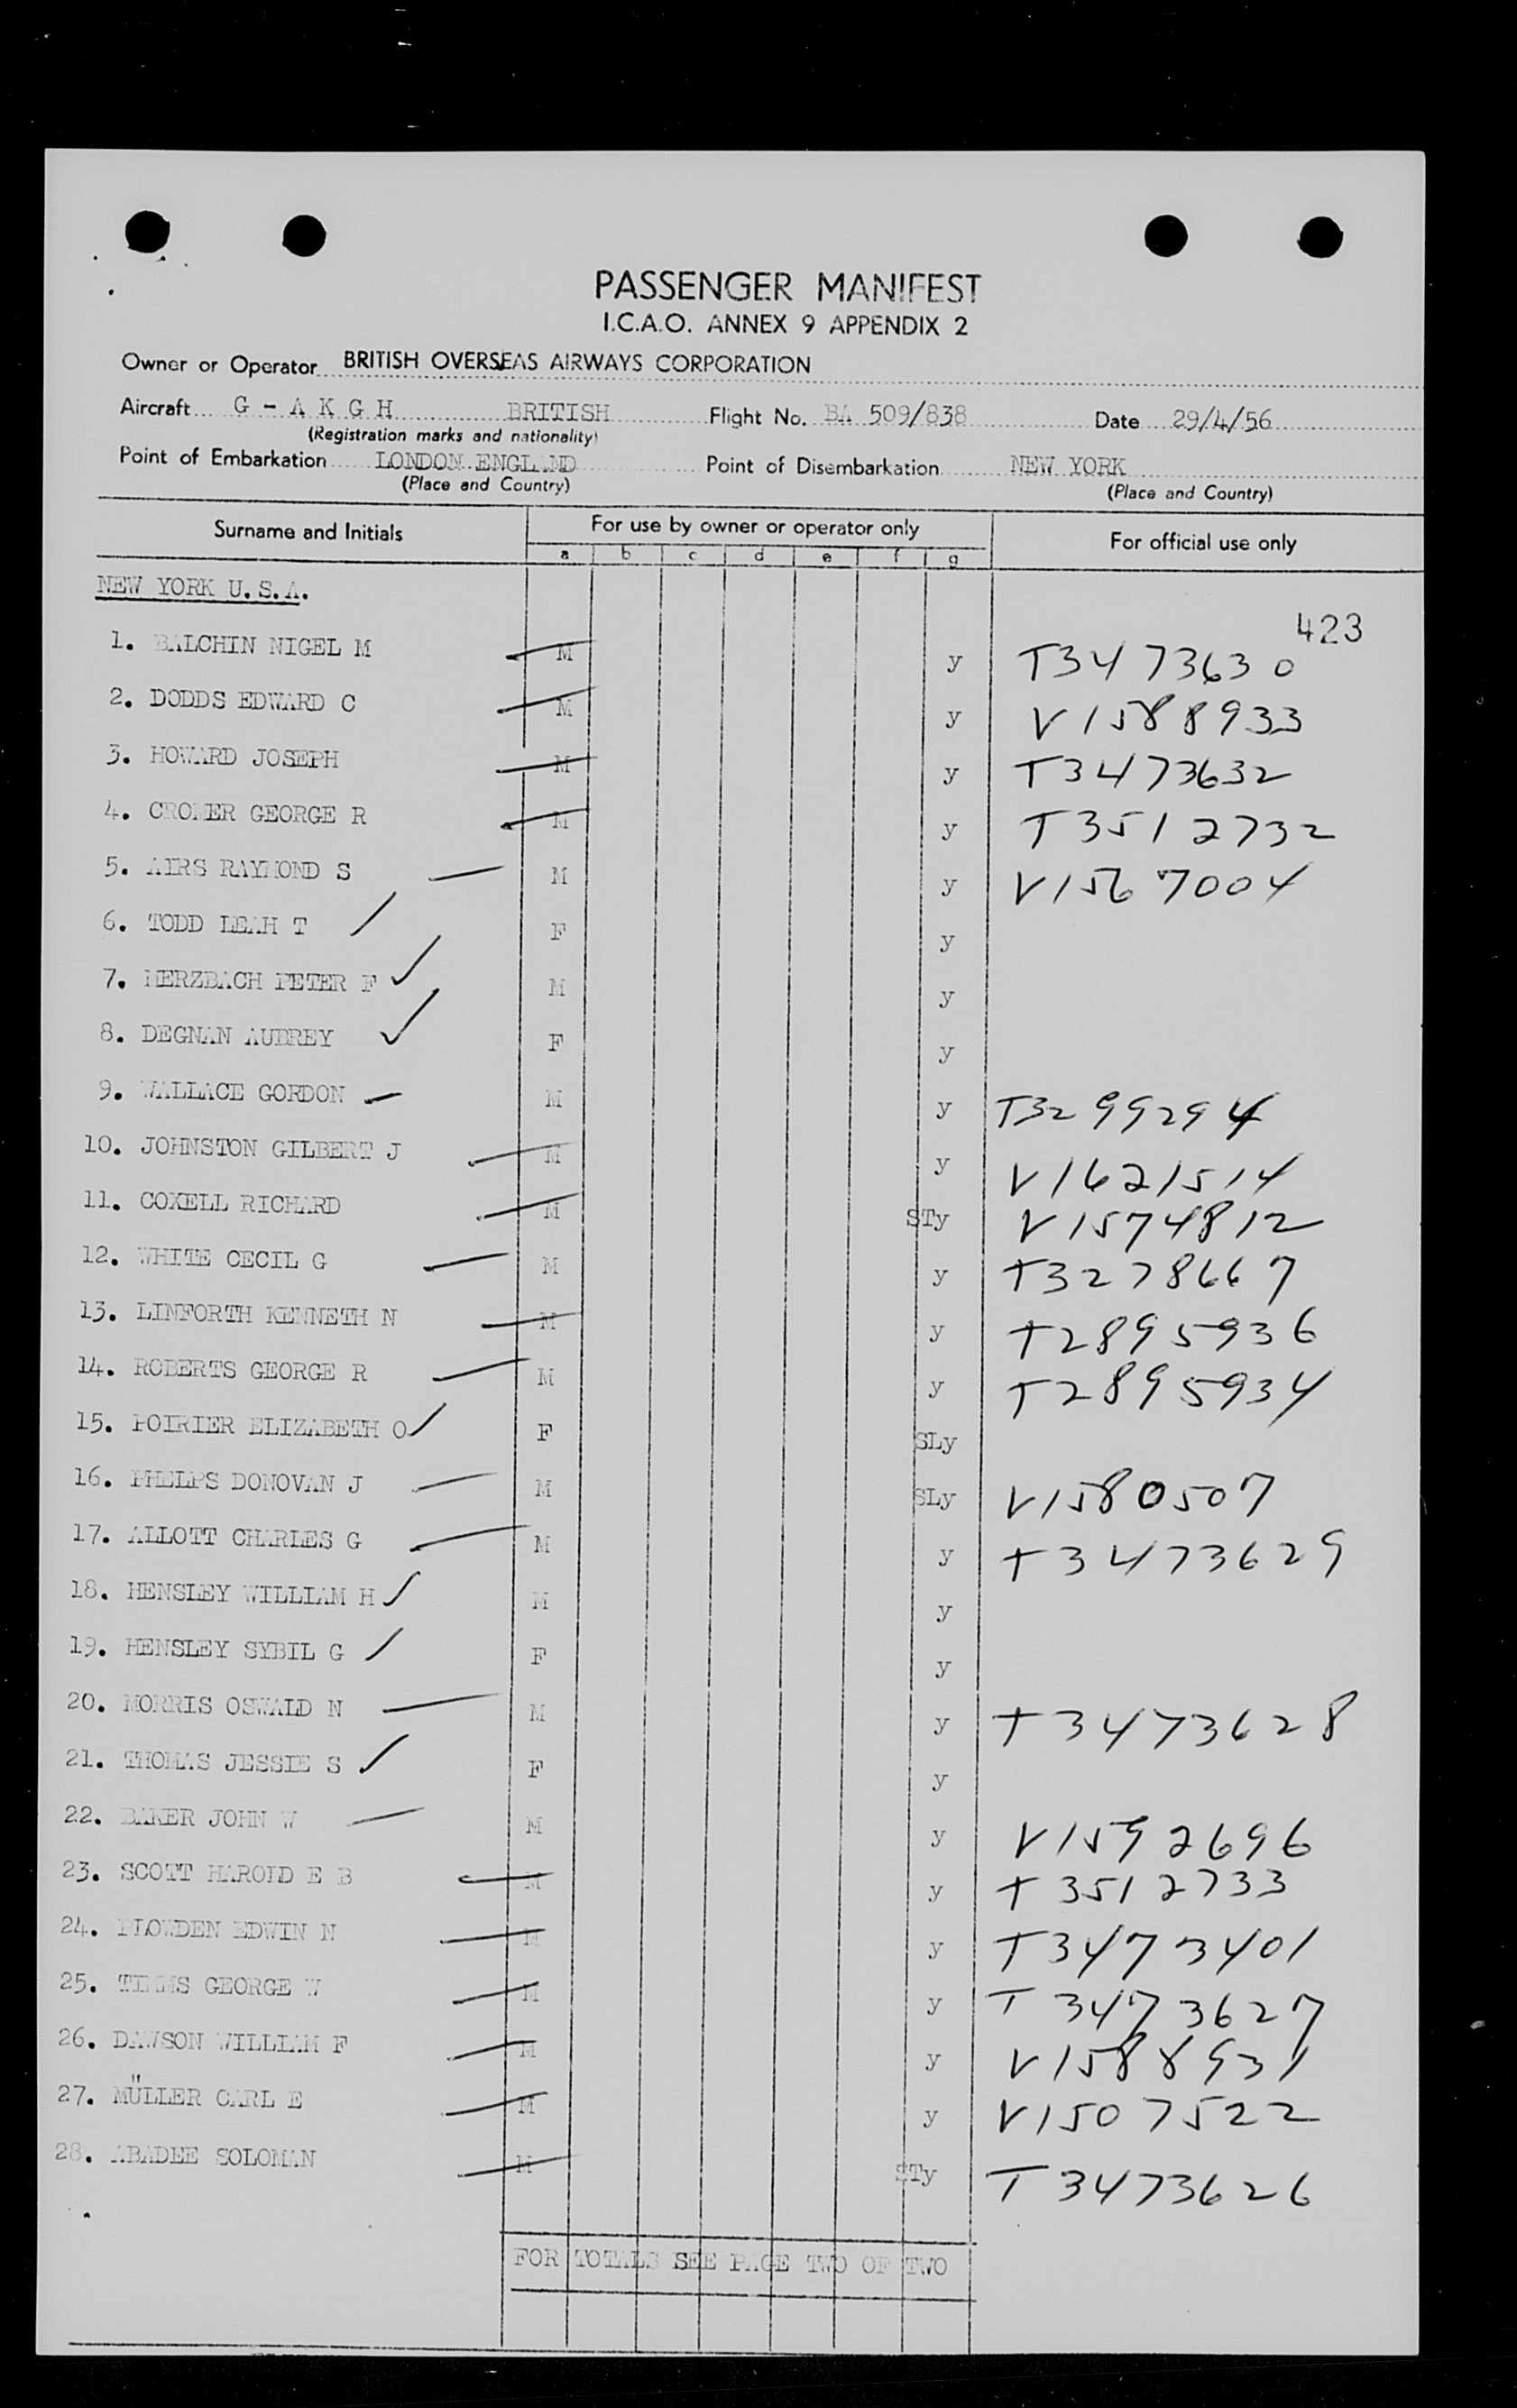 PASSENGER MANIFEST
I.C.A.O. ANNEX 9 APPENDIX 2
Owner or Operator BRITISH OVERSEAS AIRWAYS CORPORATION
Aircraft G - A K G H BRITISH Flight No. BA 509/838 Date 29/4/56
(Registration marks and nationality)
Point of Embarkation LONDON ENGLAND Point of Disembarkation NEW YORK
(Place and Country) (Place and Country)
Surname and Initials For use by owner or operator only For official use only
a b c d e f g
NEW YORK U.S.A.
423
1. BALCHIN NIGEL M M y T3473630
2. DODDS EDWARD C M y V1588933
3. HOWARD JOSEPH M y T3473632
4. CROMER GEORGE R M y T3512732
5. AIRS RAYMOND S M y V1567004
6. TODD LEAH T F y
7. MERZBACH PETER F M y
8. DEGNAN AUDREY F y
9. WALLACE GORDON M y T3299294
10. JOHNSTON GILBERT J M y V1621514
11. COXELL RICHARD M STy V1574812
12. WHITE CECIL G M y T3278667
13. LINFORTH KENNETH N M y T2895936
14. ROBERTS GEORGE R M y T2895934
15. POIRIER ELIZABETH O F SLy
16. PHELPS DONOVAN J M SLy V1580507
17. ALLOTT CHARLES G M y T3473629
18. HENSLEY WILLIAM H M y
19. HENSLEY SYBIL G F y
20. MORRIS OSWALD N M y T3473628
21. THOMAS JESSIE S F y
22. BAKER JOHN W M y V1592696
23. SCOTT HAROLD E B M y T3512733
24. PLOWDEN EDWIN N M y T3473401
25. TIMMS GEORGE W M y T3473627
26. DAWSON WILLIAM F M y V1588931
27. MÜLLER CARL E M y V1507522
28. ABADEE SOLOMAN M STy T3473626
FOR TOTALS SEE PAGE TWO OF TWO